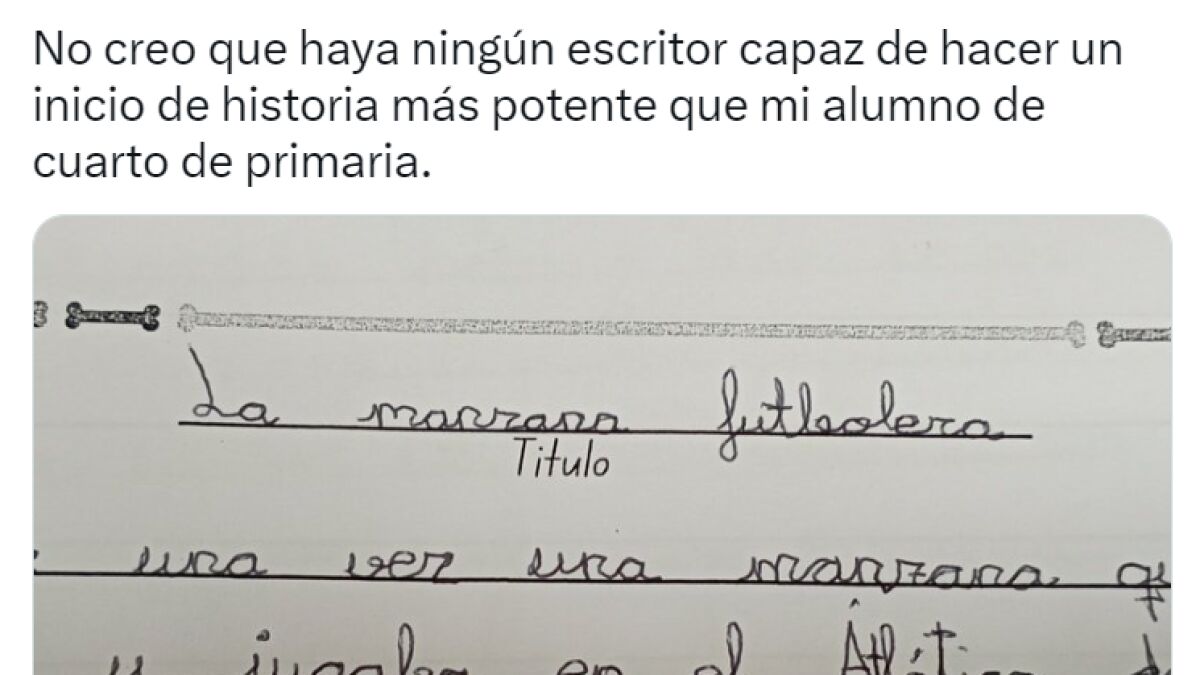 No creo que haya ningún escritor capaz de hacer un
inicio de historia más potente que mi alumno de
cuarto de primaria.
La manzana futbolera
Titulo
una vez una manzana
jugaba en el Átlético